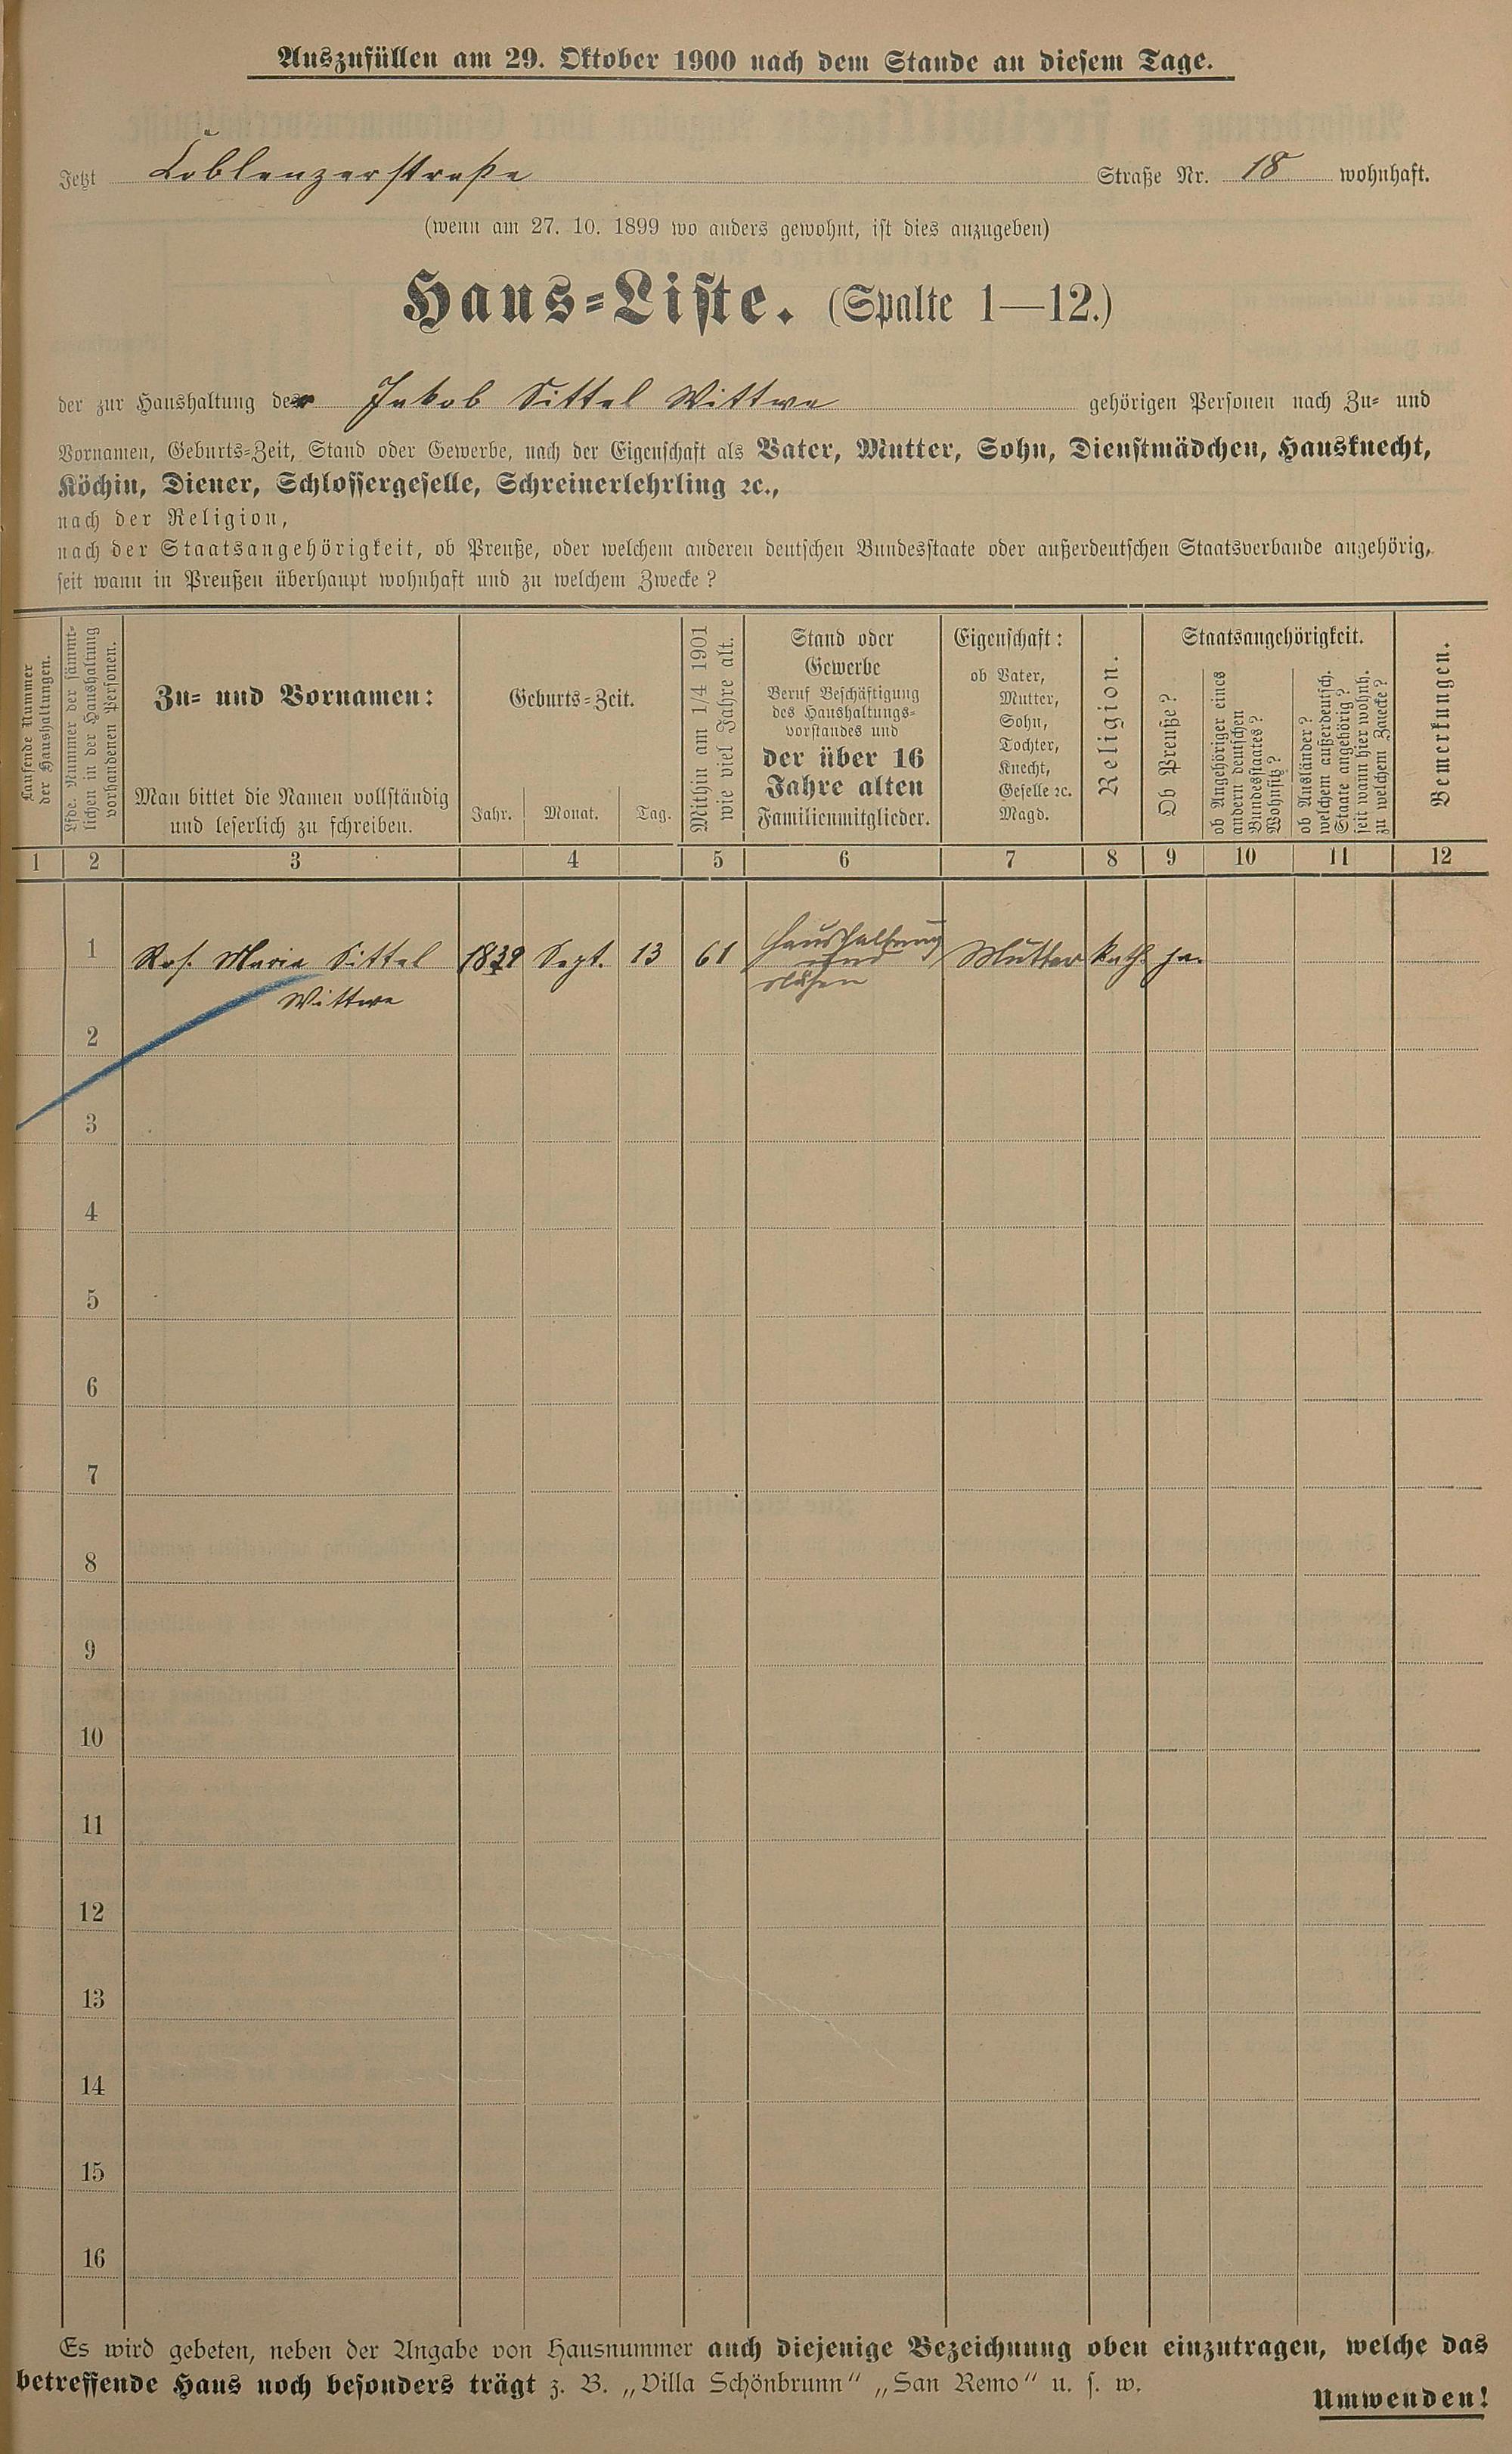 Auszufüllen am 29. Oktober 1900 nach dem Stande an diesem Tage.
Jetzt Coblenzerstraße Straße Nr. 18 wohnhaft.
(wenn am 27. 10. 1899 wo anders gewohnt, ist dies anzugeben)
Haus-Liste. (Spalte 1—12.)
der zur Haushaltung der Jakob Sittel Wittwe gehörigen Personen nach Zu- und
Vornamen, Geburts-Zeit, Stand oder Gewerbe, nach der Eigenschaft als Vater, Mutter, Sohn, Dienstmädchen, Hausknecht,
Köchin, Diener, Schlossergeselle, Schreinerlehrling ꝛc.,
nach der Religion,
nach der Staatsangehörigkeit, ob Preuße, oder welchem anderen deutschen Bundesstaate oder außerdeutschen Staatsverbande angehörig,
seit wann in Preußen überhaupt wohnhaft und zu welchem Zwecke?
Laufende Nummer
der Haushaltungen.
Lfde. Nummer der sämmt-
lichen in der Haushaltung
vorhandenen Personen.
Zu- und Vornamen:
Man bittet die Namen vollständig
und leserlich zu schreiben.
Geburts-Zeit.
Jahr. Monat. Tag.
Mithin am 1/4 1901
wie viel Jahre alt.
Stand oder
Gewerbe
Beruf Beschäftigung
des Haushaltungs-
vorstandes und
der über 16
Jahre alten
Familienmitglieder.
Eigenschaft:
ob Vater,
Mutter,
Sohn,
Tochter,
Knecht,
Geselle ꝛc.
Magd.
Religion.
Staatsangehörigkeit.
Ob Preuße?
ob Angehöriger eines
andern deutschen
Bundesstaates?
Wohnsitz?
ob Ausländer?
welchem außerdeutsch.
Staate angehörig?
seit wann hier wohnh.
zu welchem Zwecke?
Bemerkungen.
1 2 3 4 5 6 7 8 9 10 11 12
1 Ros. Maria Sittel 1839 Sept. 13 61 Haushaltung Mutter kath. ja.
und
Wittwe
2
3
4
5
6
7
8
9
10
11
12
13
14
15
16
Es wird gebeten, neben der Angabe von Hausnummer auch diejenige Bezeichnung oben einzutragen, welche das
betreffende Haus noch besonders trägt z. B. „Villa Schönbrunn" „San Remo" u. s. w.
Umwenden!